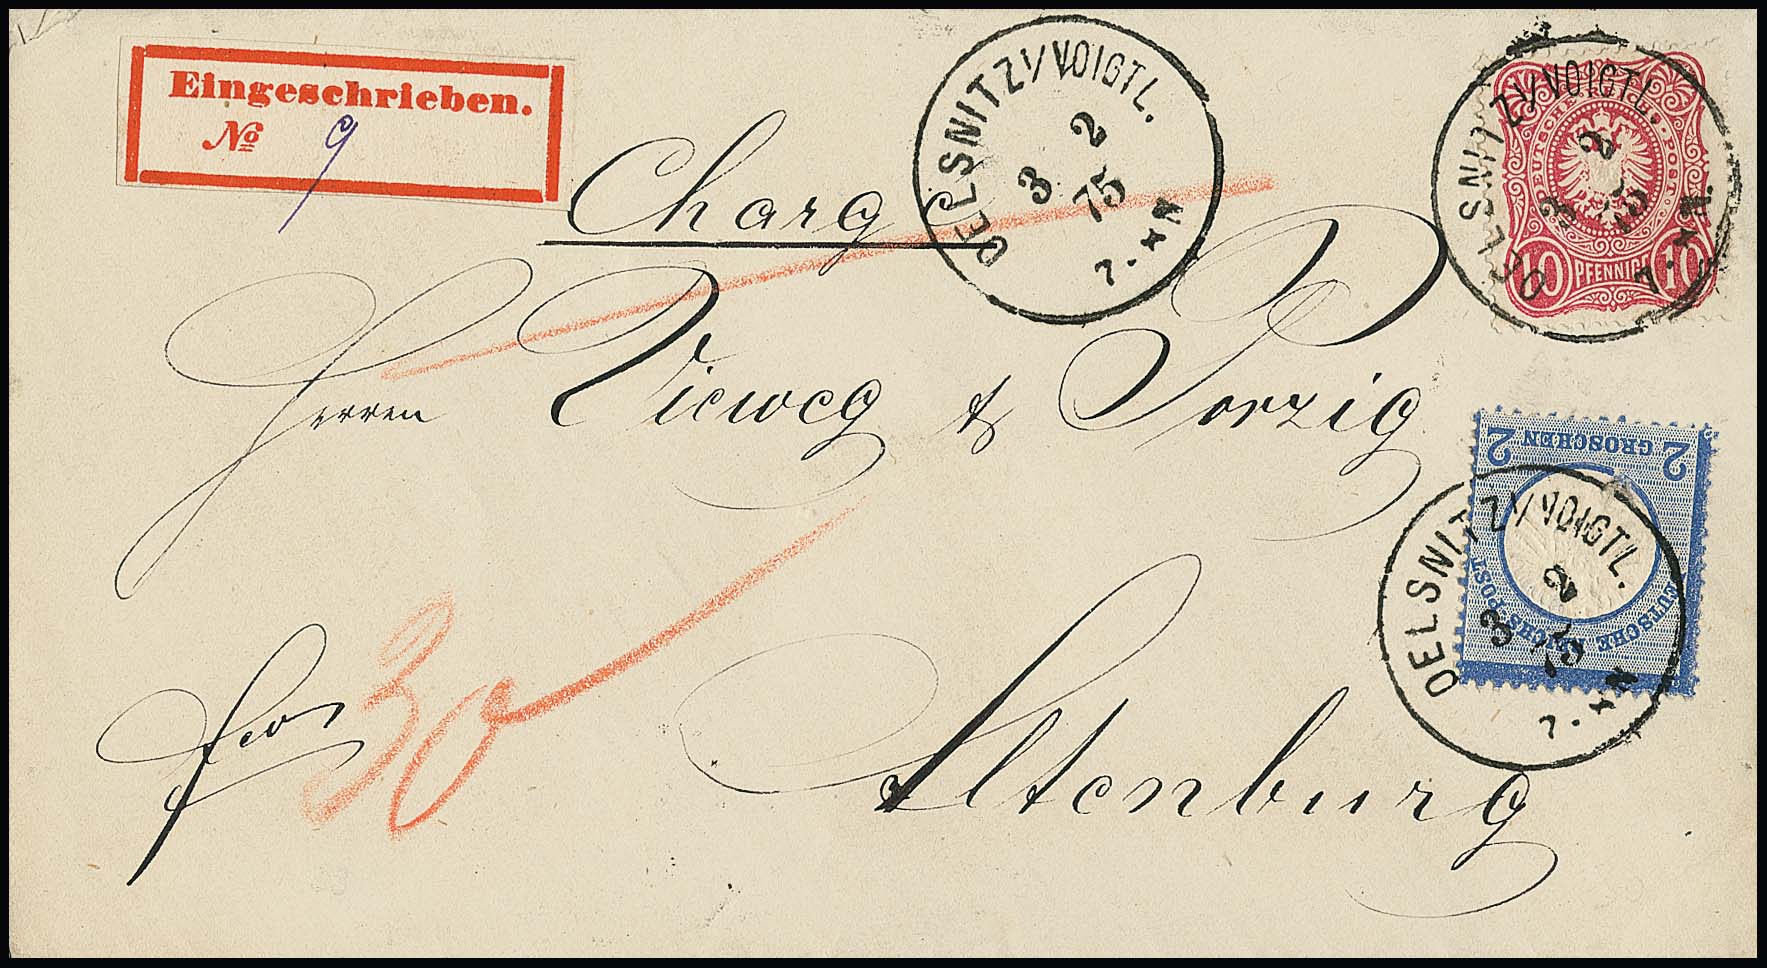 Eingeschrieben.
№ 9
Charg
OELSNITZ I/VOIGTL.
3 2
75
7.*N
OELSNITZ I/VOIGTL.
3 2
75
7.*N
DEUTSCHE REICHS-POST
10 PFENNIGE 10
Herren Vieweg & Porzig
2 GROSCHEN 2
DEUTSCHE REICHS-POST
OELSNITZ I/VOIGTL.
3 2
75
7.*N
fco 30
Altenburg